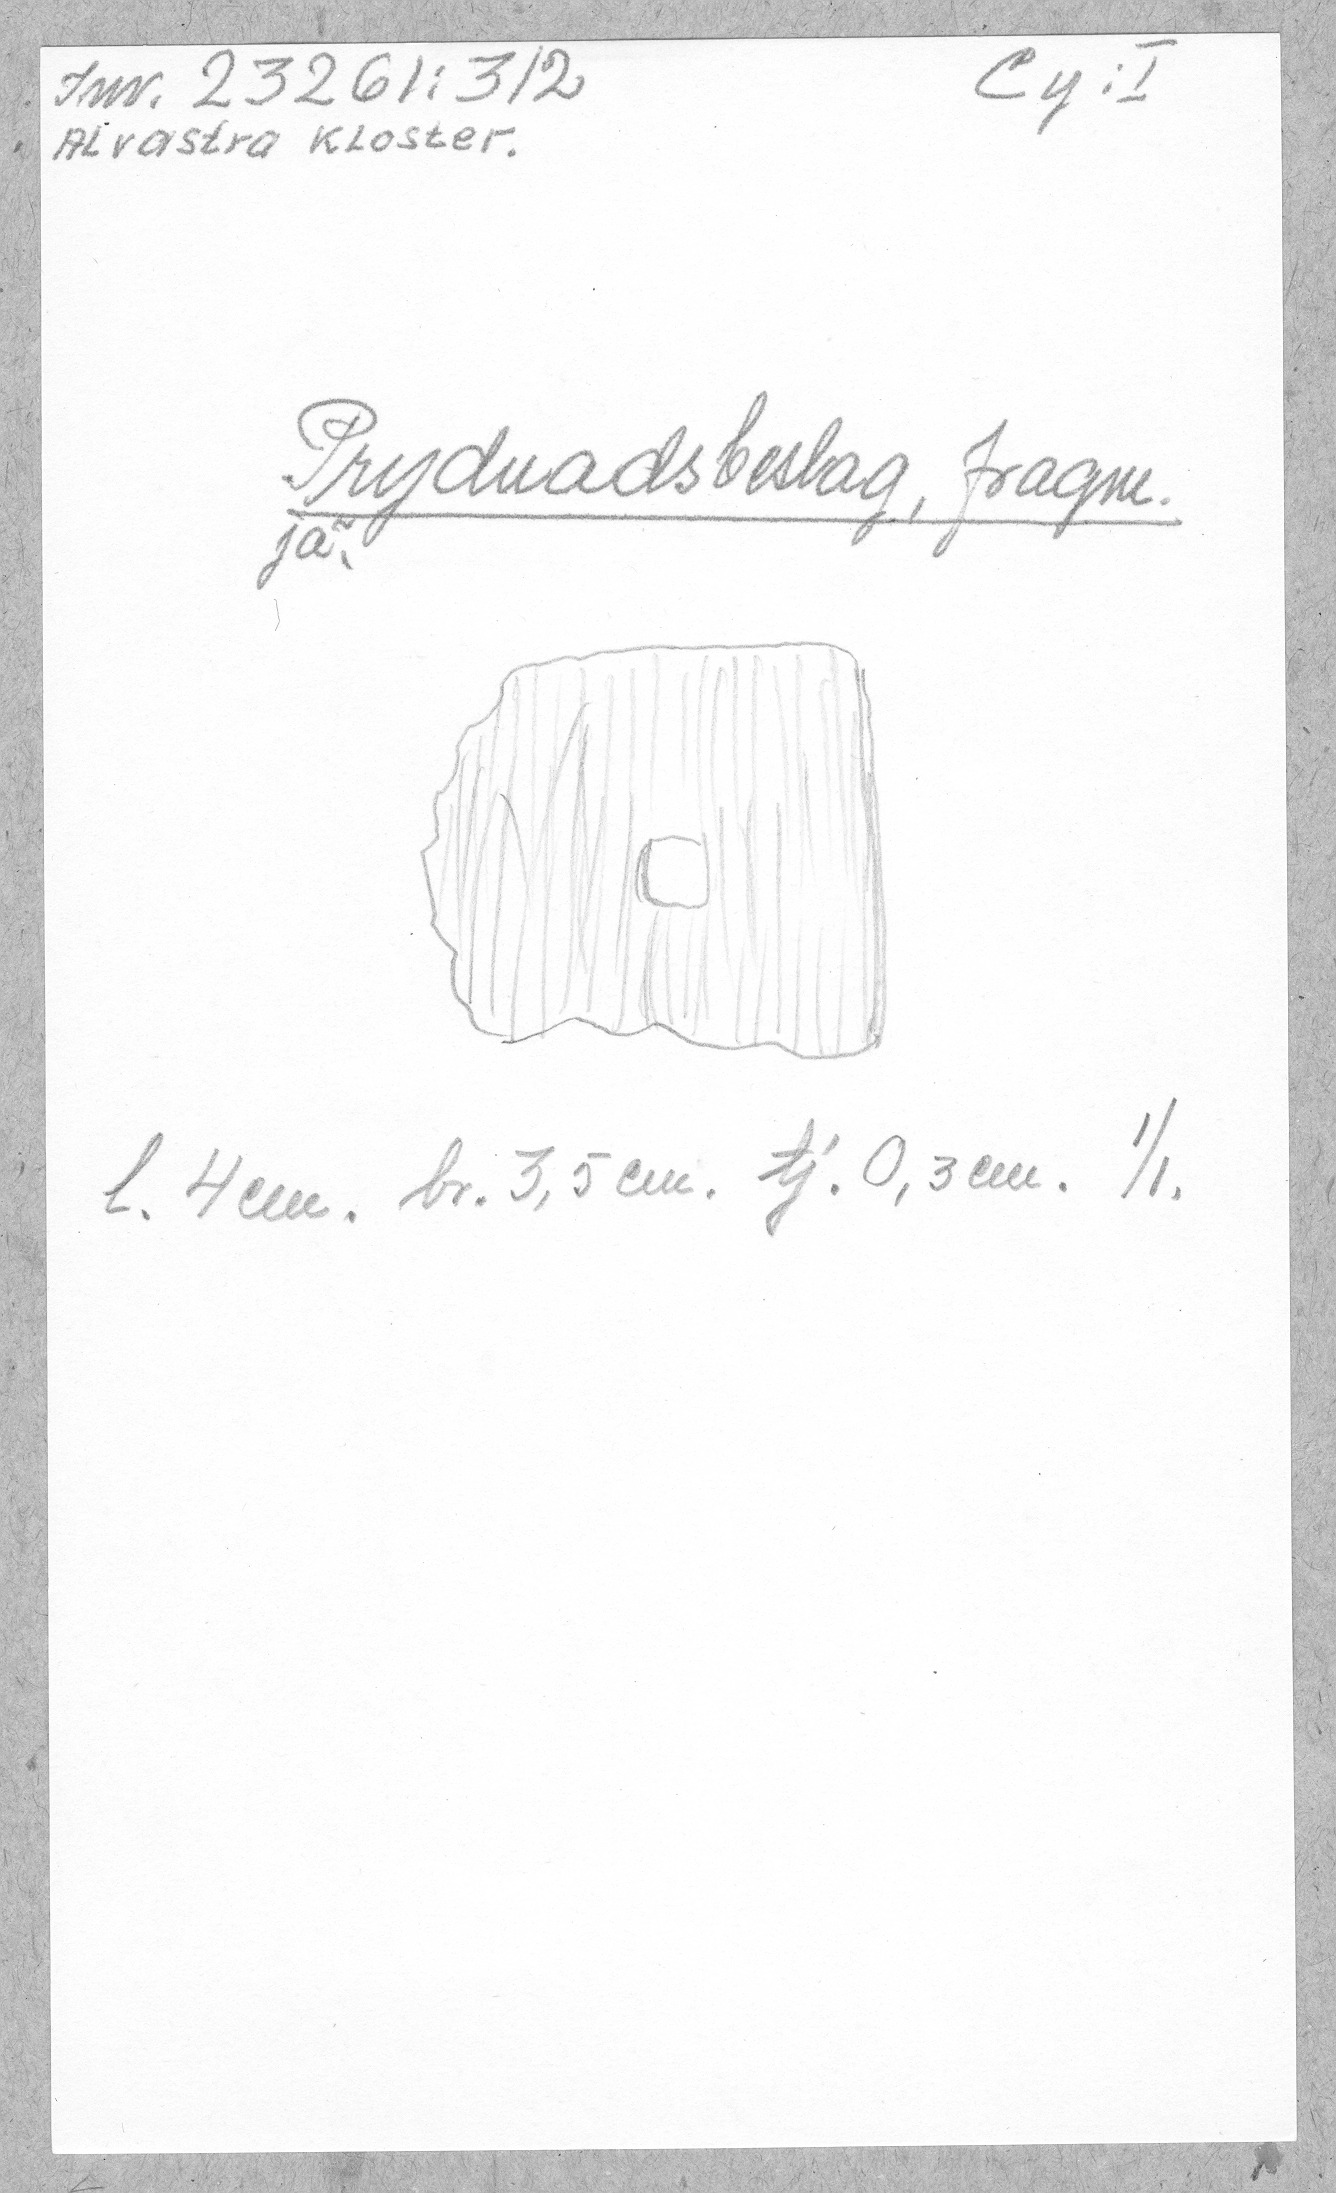 Inv. 23261:312
Cy:I
Alvastra Kloster.
Prydnadsbeslag, fragm.
jä.
l. 4 cm. br. 3,5 cm. tj. 0,3 cm. 1/1.